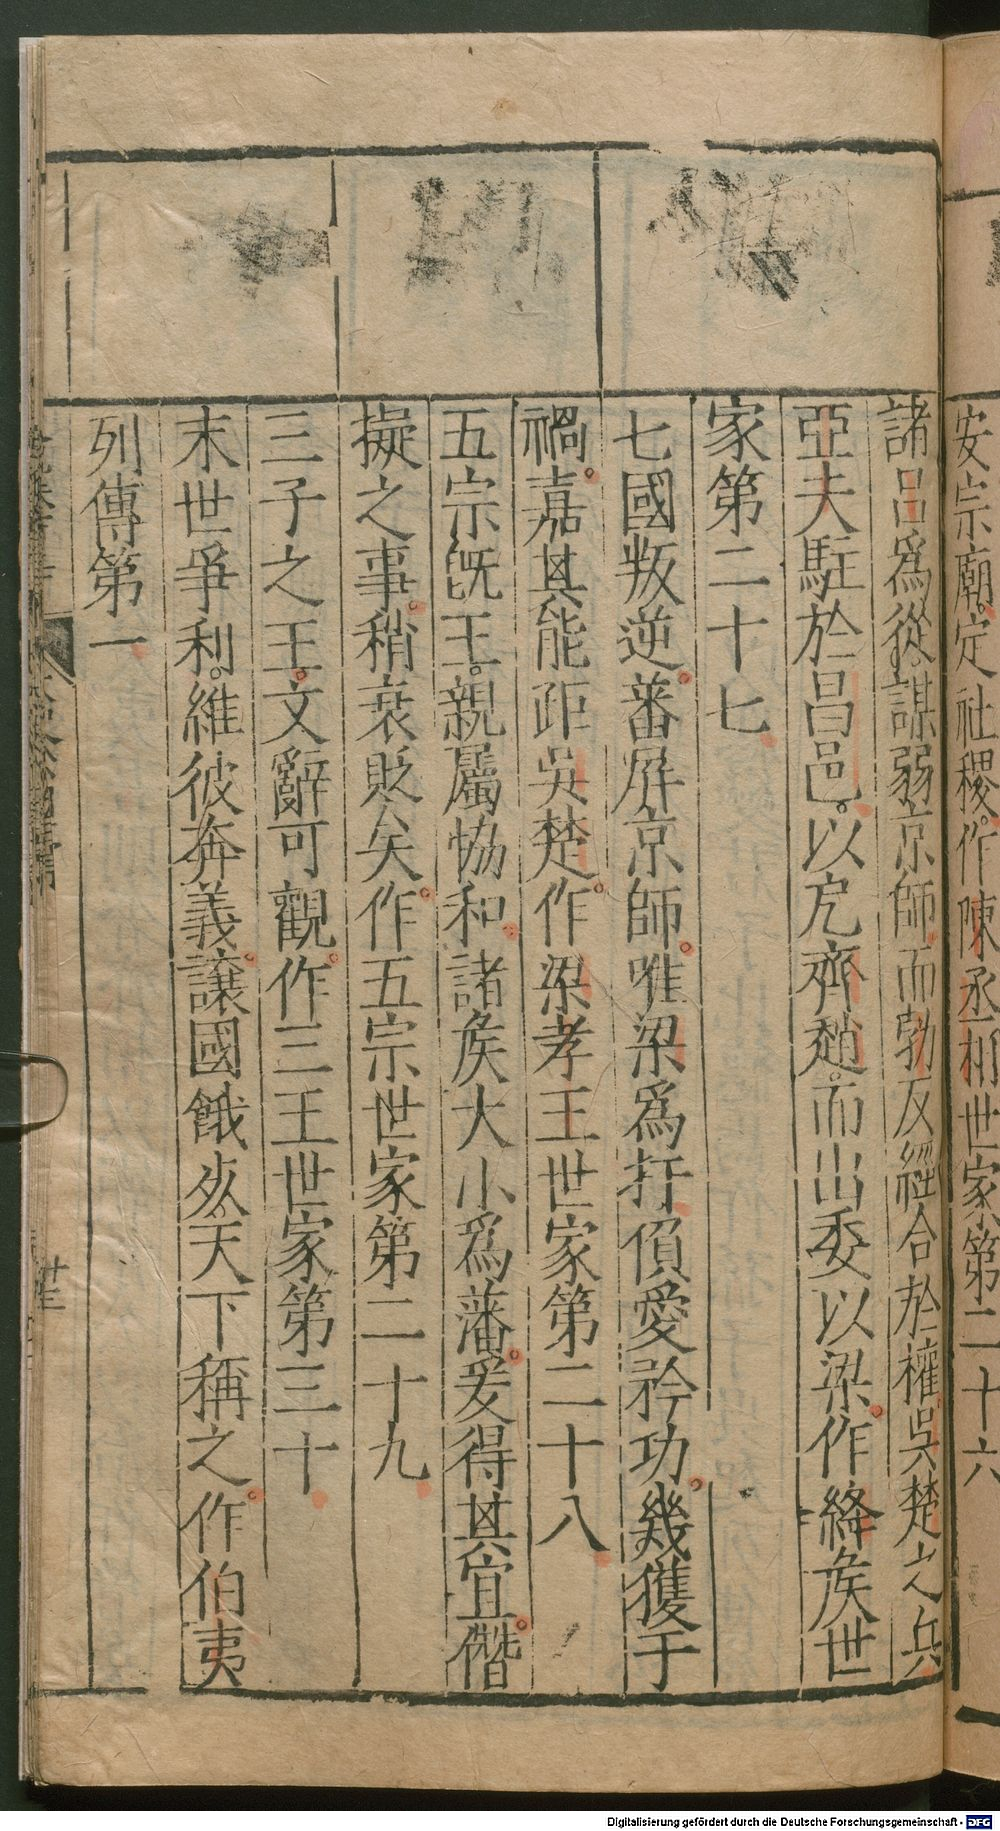 安宗廟定社稷作陳丞相世家第二十六
諸呂爲從謀弱京師而勃反經合於權吳楚之兵
亞夫駐於昌邑以戹齊趙而出委以梁作絳矦世
家第二十七
七國叛逆蕃屏京師唯梁爲扞偩愛矜功幾獲于
禍嘉其能距吳楚作梁孝王世家第二十八
五宗旣王親屬恊和諸矦大小爲藩爰得其宜僭
擬之事稍衰貶矣作五宗世家第二十九
三子之王文辭可觀作三王世家第三十
末世爭利維彼奔義讓國餓死天下稱之作伯夷
列傳第一
Digitalisierung gefördert durch die Deutsche Forschungsgemeinschaft - DFG